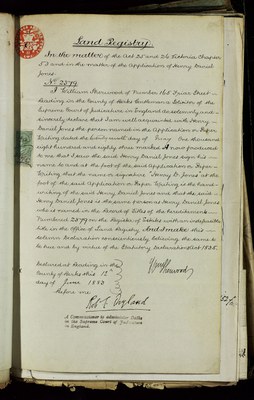 Land Registry.
In the matter of the Act 25 and 26 Victoria Chapter
53 and in the matter of the Application of Henry Daniel
Jones.
No. 2579
I William Sherwood of Number 165 Friar Street
Reading in the County of Berks Gentleman Solicitor of the
Supreme Court of Judicature in England do solemnly and
sincerely declare that I am well acquainted with Henry
Daniel Jones the person named in the Application or Paper
Writing dated the day of June One thousand
eight hundred and eighty three marked A now produced
to me that I saw the said Henry Daniel Jones sign his
name to and at the foot of the said Application or Paper
Writing that the name or signature "Henry D. Jones" at the
foot of the said Application or Paper Writing is the hand
writing of the said Henry Daniel Jones and that the said
Henry Daniel Jones is the same person as Henry Daniel Jones
who is named in the Record of Titles of the hereditaments
Numbered 2579 on the Register of Estates with an indefeasible
title in the Office of Land Registry And I make this
solemn Declaration conscientiously believing the same to
be true and by virtue of the Statutory Declarations Act 1835.
Declared at Reading in the
County of Berks this 12th
day of June 1883
Before me
Wm Sherwood
Rob. C. England
A Commissioner to administer Oaths
in the Supreme Court of Judicature
in England.